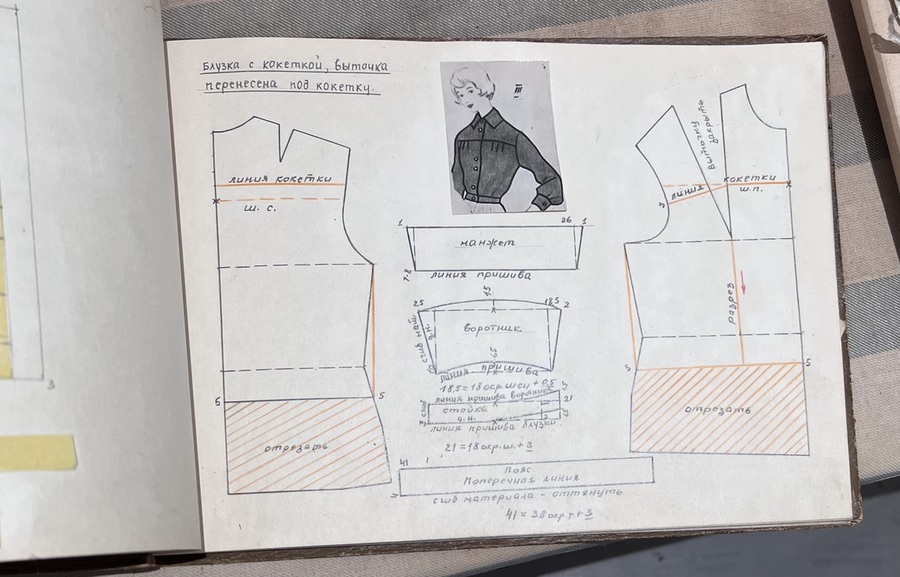 Блузка с кокеткой, выточка
перенесена под кокетку.
III
линия кокетки
ш. с.
6
5
отрезать
1
26
1
манжет
7-8
линия пришива
1,5
25
18,5
2
сгиб мат.
д.н.
воротник
6,5
линия пришива
18,5 = 18 окр шеи + 0,5
линия пришива воротника
3
сгиб
стойка
д.н.
21
линия пришива блузки
3
21 = 18 окр. ш. + 3
41
1
пояс
Поперечная линия
сгиб материала - оттянуть
41 = 38 окр. т + 3
выточку
закрыть
3
линия
кокетки
ш. п.
разрез
5
5
отрезать
3